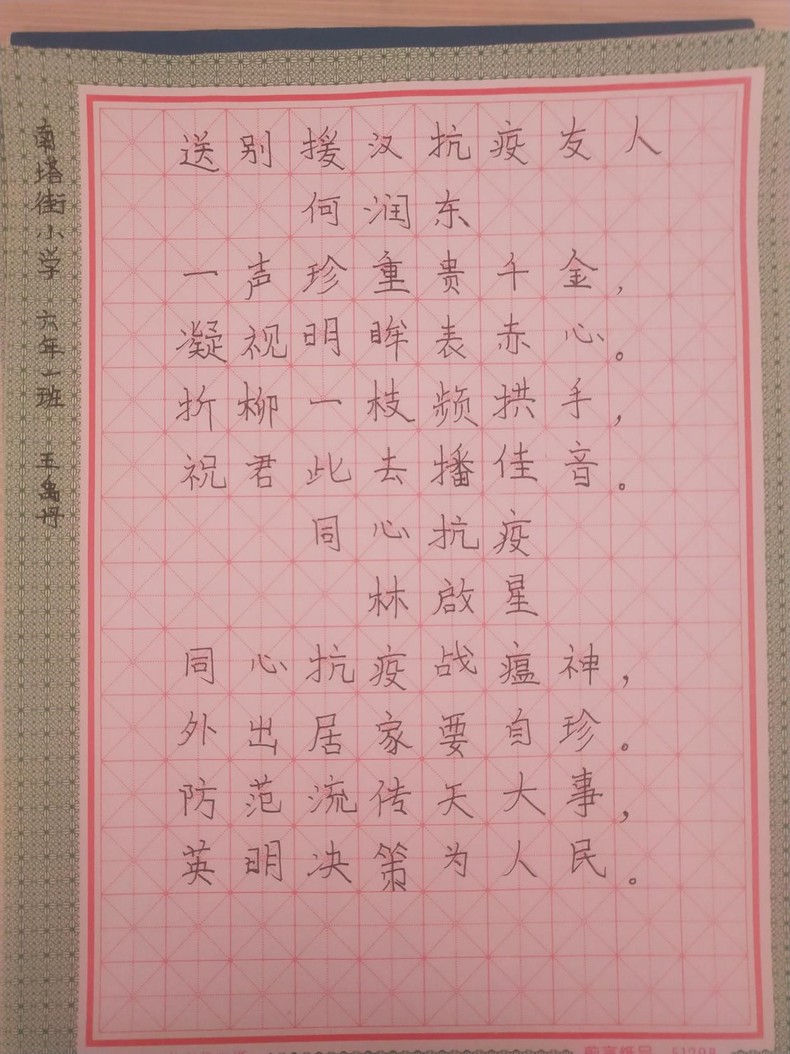 送别援汉抗疫友人
何润东
一声珍重贵千金，
凝视明眸表赤心。
折柳一枝频拱手，
祝君此去播佳音。
同心抗疫
林啟星
同心抗疫战瘟神，
外出居家要自珍。
防范流传天大事，
英明决策为人民。
南塔街小学 六年一班 王禹丹